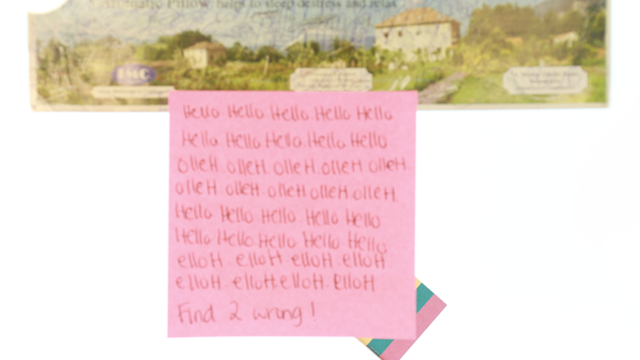 Aromatic Pillow helps to deep destress and relax
Hello Hello Hello Hello Hello
Hello Hello Hello Hello Hello
OlleH OlleH OlleH OlleH OlleH
OlleH OlleH OlleH OlleH OlleH
Hello Hello Hello Hello Hello
Hello Hello Hello Hello Hello
elloH elloH elloH elloH
elloH elloH elloH elloH
Find 2 wrong!